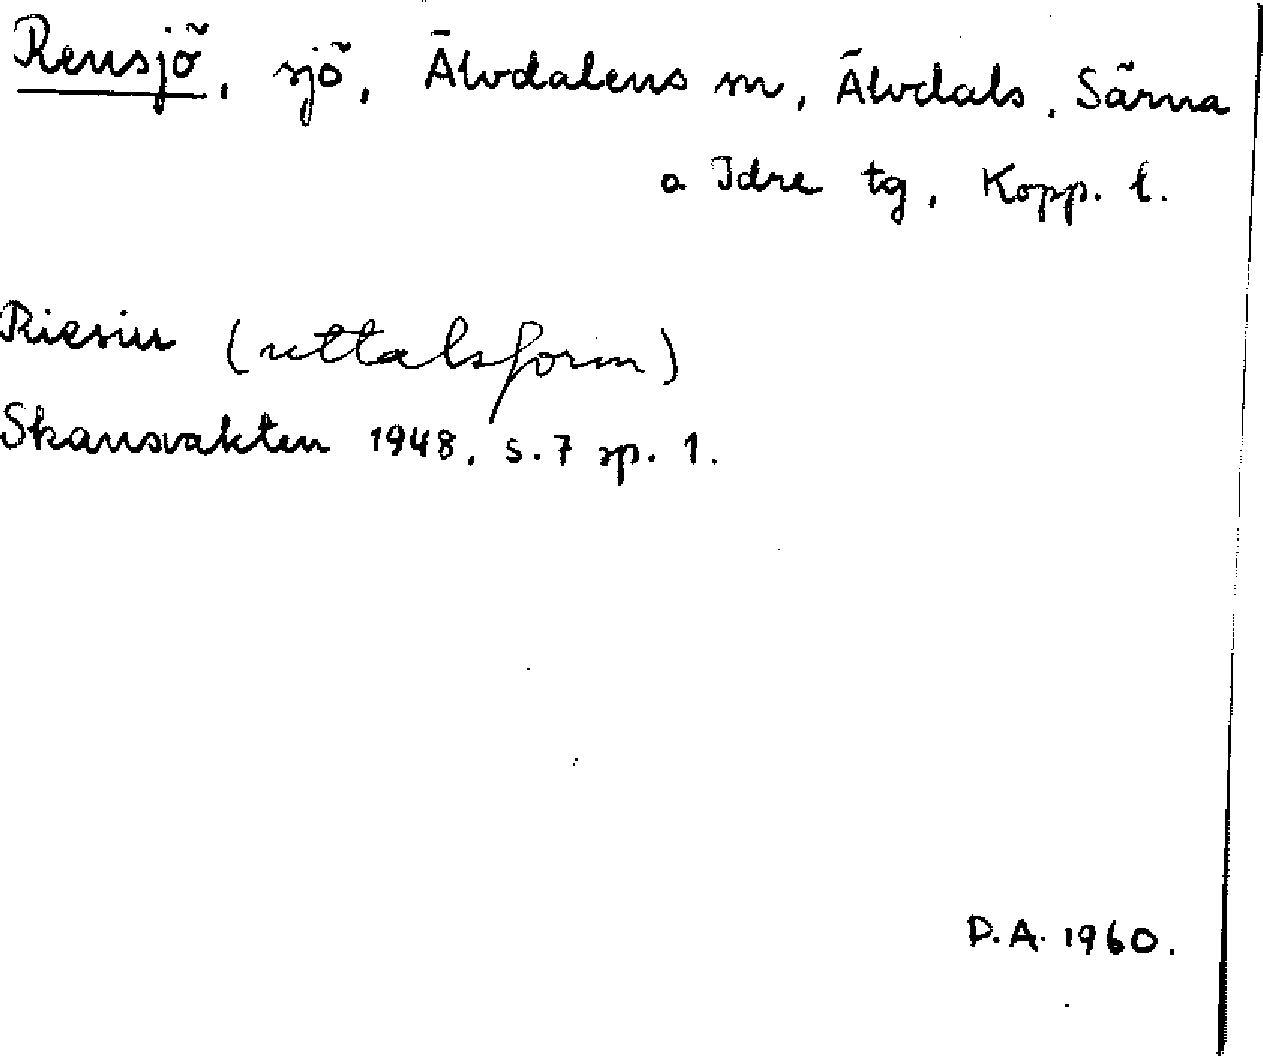 Rensjö, sjö, Älvdalens m, Älvdals, Särna
o Idre tg, Kopp. l.
Riesiu (uttalsform)
Skansvakten 1948, s. 7 sp. 1.
D.A. 1960.